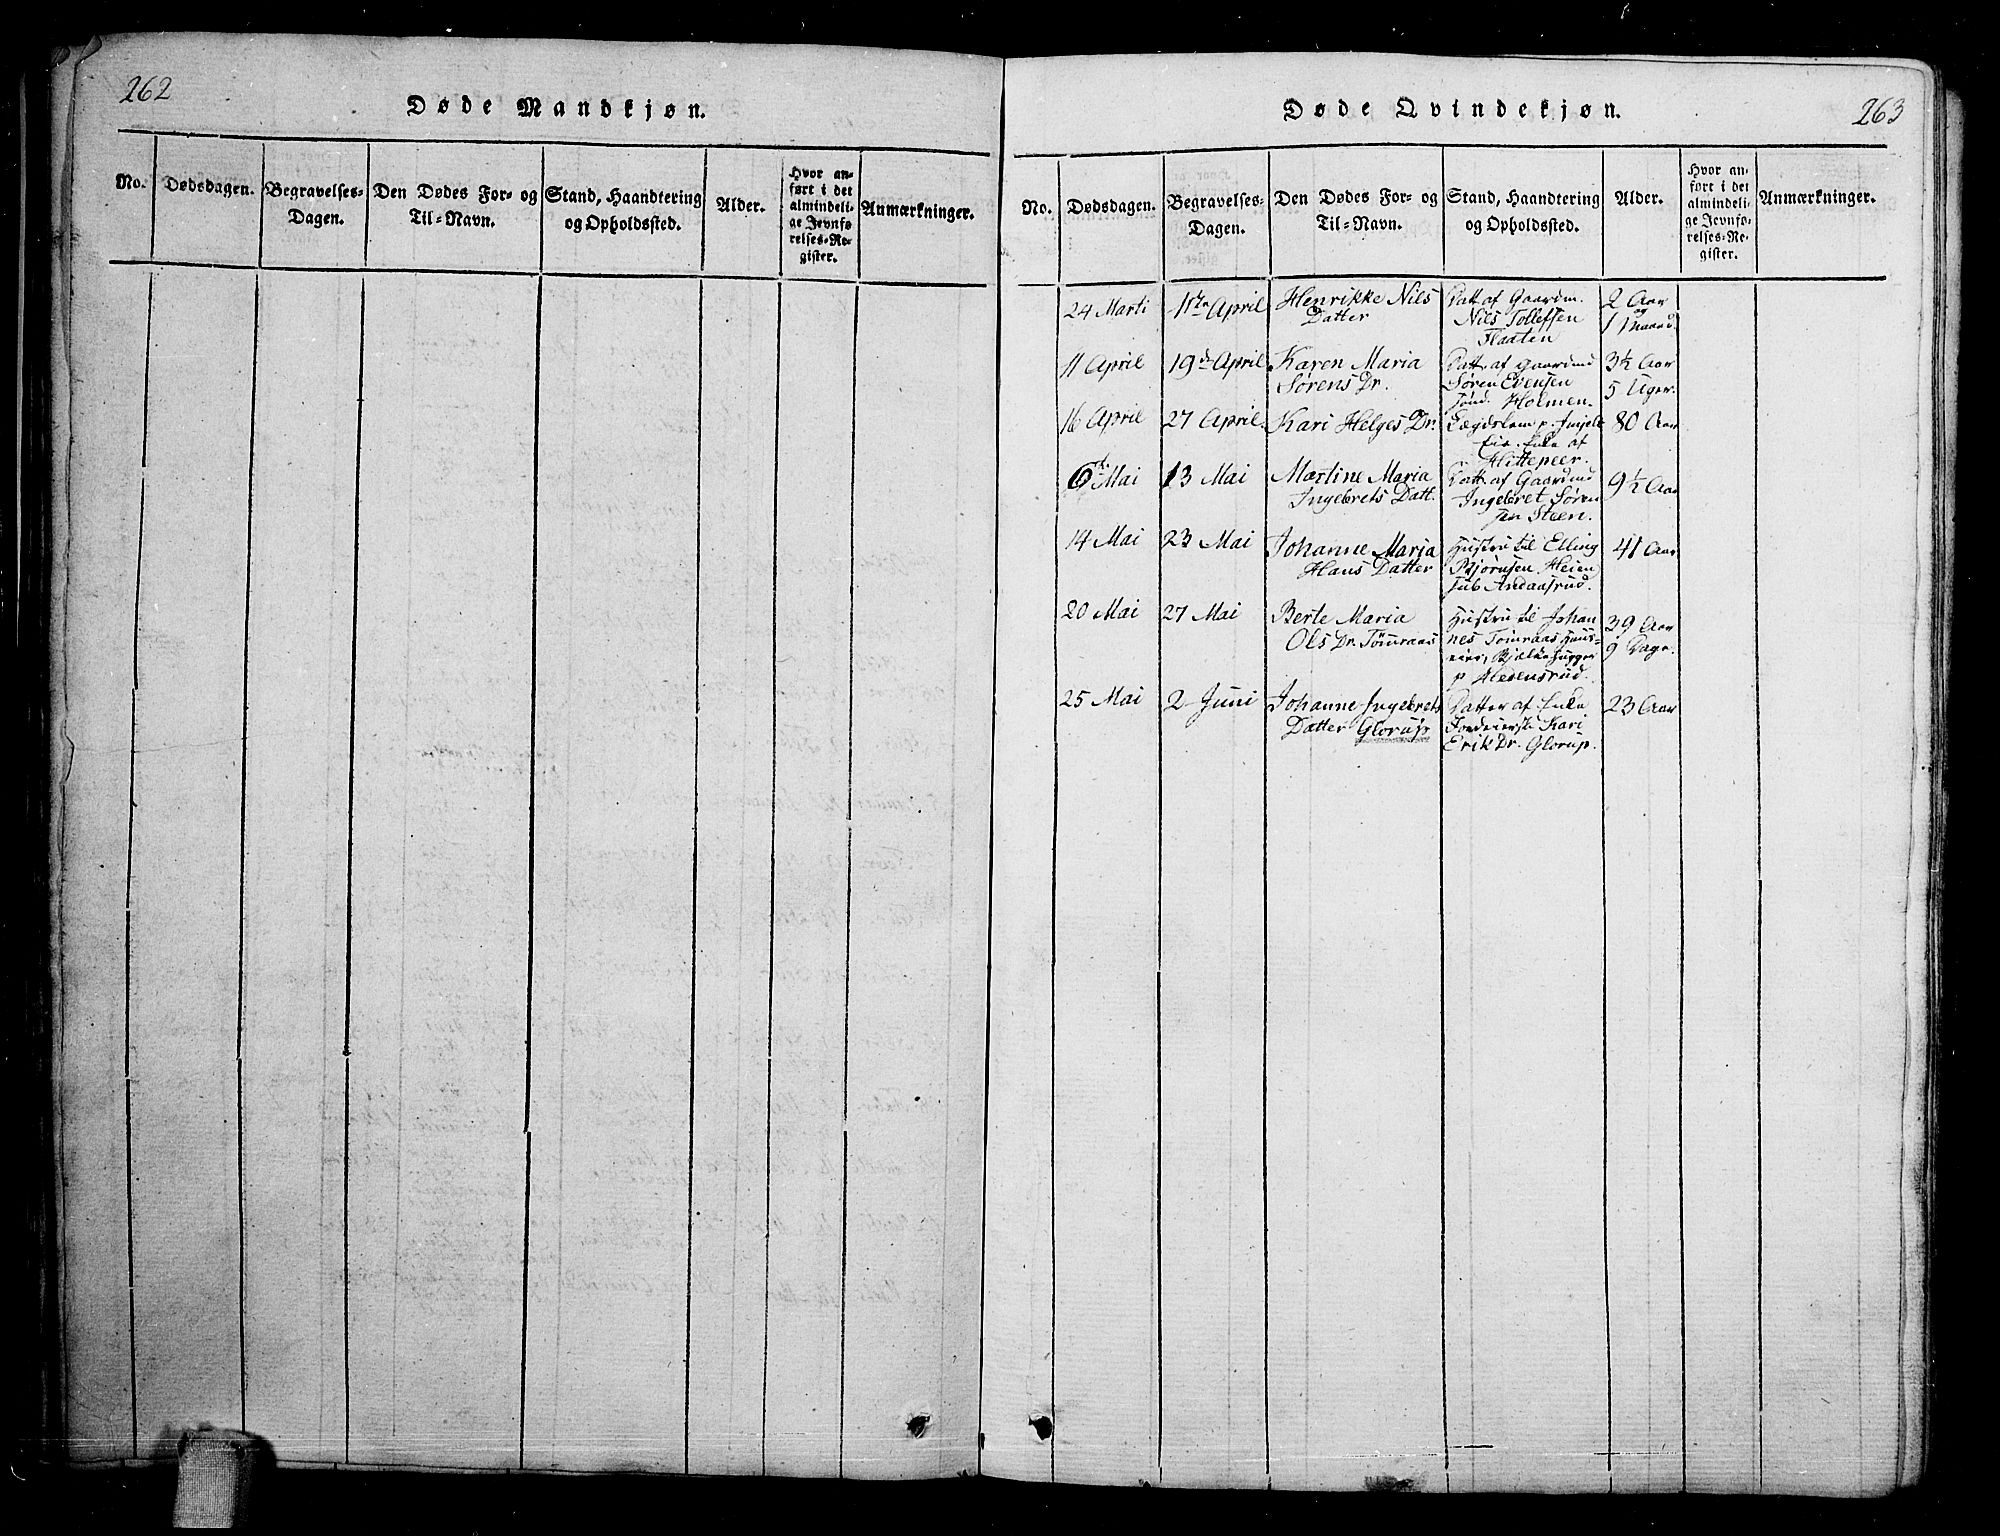 262
Døde Mandkjøn.
No.
Dødsdagen.
Begravelses-
Dagen.
Den Dødes For- og
Til-Navn.
Stand, Haandtering
og Opholdssted.
Alder.
Hvor an-
ført i det
almindeli-
ge Jevnfø
relses-Re-
gister.
Anmærkninger.
Døde Qvindekjøn.
263
No.
Dødsdagen.
Begravelses-
Dagen.
Den Dødes For- og
Til-Navn.
Stand, Haandtering
og Opholdssted.
Alder.
Hvor an-
ført i det
almindeli-
ge Jevnfø-
relses-Re-
gister.
Anmærkninger.
24 Marti
1ste April
Henrikke Nils
Datter
Datt af Gaardm.
Nils Tollefsen
Flaaten
2 Aar
og
1 Maaned
11 April
19de April
Karen Maria
Sørens Dr.
Datt. af Gaardmd
Søren Evensen
Holmen.
3½ Aar
5 Uger.
16 April
27 April.
Kari Helges Dr.
Lægdslem p.
Enke af
Hittepeer.
80 Aar
6te Mai
13 Mai
Martine Maria
Ingebrets Datt.
Datt. af Gaardmd
Ingebret Søren
sen Steen.
9½ Aar
14 Mai
23 Mai
Johanne Maria
Hans Datter
Hustru til Elling
Bjørnsen Heien
sub Andaasrud.
41 Aar
20 Mai
27 Mai
Berte Maria
Ols Dr. Tømraas
Hustru til Johan
nes Tømraas Huus-
p Hedensrud.
39 Aar
9 Dage.
25 Mai
2 Juni
Johanne Ingebrets
Datter Glorup
Datter af Enke
Kari
Erik Dr. Glorup.
23 Aar